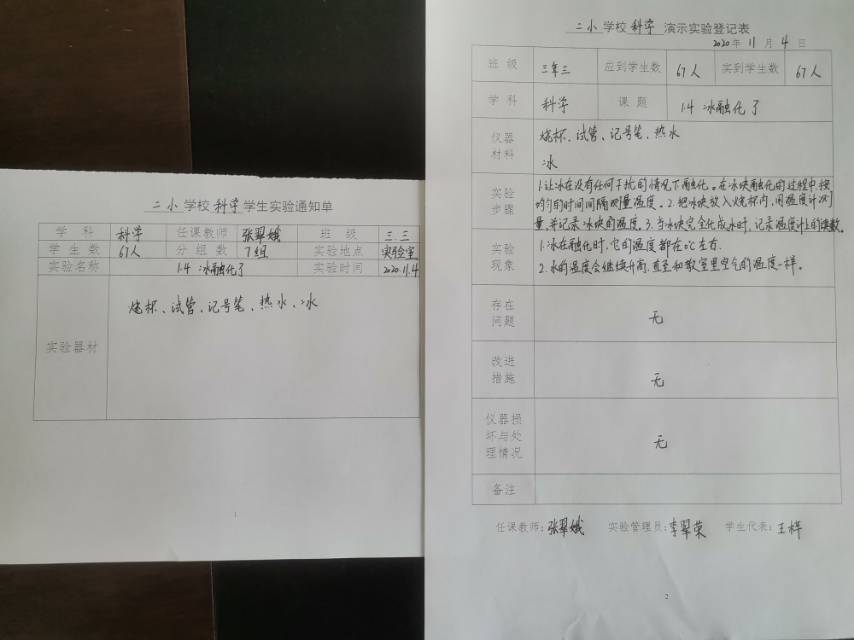 二小 学校 科学 学生实验通知单
学科 科学 任课教师 张翠娥 班级 三.三
学生数 67人 分组数 7组 实验地点 实验室
实验名称 1.4 冰融化了 实验时间 2020.11.4
实验器材 烧杯、试管、记号笔、热水、冰
1
二小 学校 科学 演示实验登记表
2020年 11月 4日
班级 三年三 应到学生数 67人 实到学生数 67人
学科 科学 课题 1.4 冰融化了
仪器材料 烧杯、试管、记号笔、热水
冰
实验步骤 1.让冰在没有任何干扰的情况下融化。在冰块融化的过程中,按
均匀的时间间隔测量温度。2.把冰块放入烧杯内,用温度计测
量,并记录冰块的温度。3.当冰块完全化成水时,记录温度计上的读数。
实验现象 1.冰在融化时,它的温度都在0℃左右.
2.水的温度会继续升高,直至和教室里空气的温度一样。
存在问题 无
改进措施 无
仪器损坏与处理情况 无
备注
任课教师:张翠娥 实验管理员:李翠荣 学生代表:王梓
2